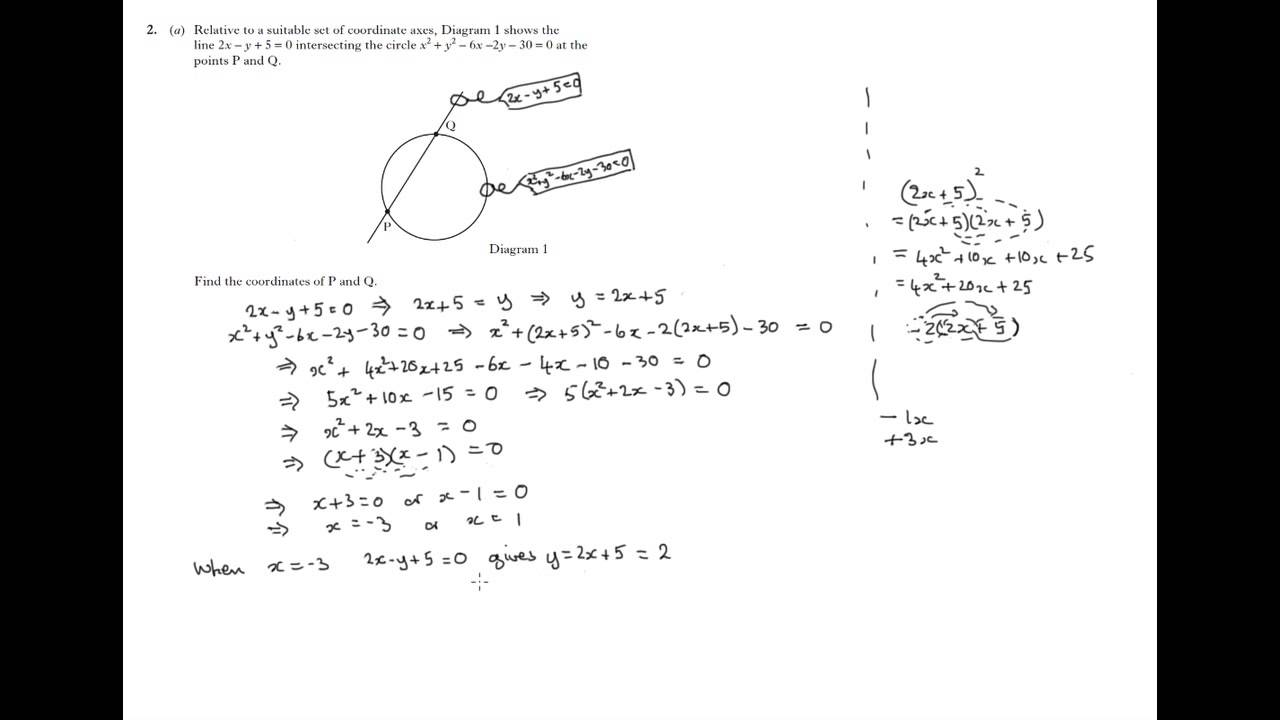 2. (a) Relative to a suitable set of coordinate axes, Diagram 1 shows the
line 2x – y + 5 = 0 intersecting the circle x² + y² – 6x –2y – 30 = 0 at the
points P and Q.
2x – y + 5 = 0
Q
x²+y²-6x-2y-30=0
P
Diagram 1
Find the coordinates of P and Q.
2x – y + 5 = 0 ⇒ 2x+5 = y ⇒ y = 2x+5
x²+y²-6x-2y-30=0 ⇒ x²+(2x+5)²-6x-2(2x+5)-30 = 0
⇒ x² + 4x²+20x+25 -6x - 4x - 10 - 30 = 0
⇒ 5x² + 10x - 15 = 0 ⇒ 5(x²+2x-3) = 0
⇒ x² + 2x - 3 = 0
⇒ (x+3)(x-1) = 0
⇒ x+3=0 or x-1=0
⇒ x = -3 or x = 1
When x = -3 2x-y+5=0 gives y=2x+5 = 2
(2x+5)²
= (2x+5)(2x+5)
= 4x²+10x+10x+25
= 4x²+20x+25
-2(2x+5)
-1x
+3x